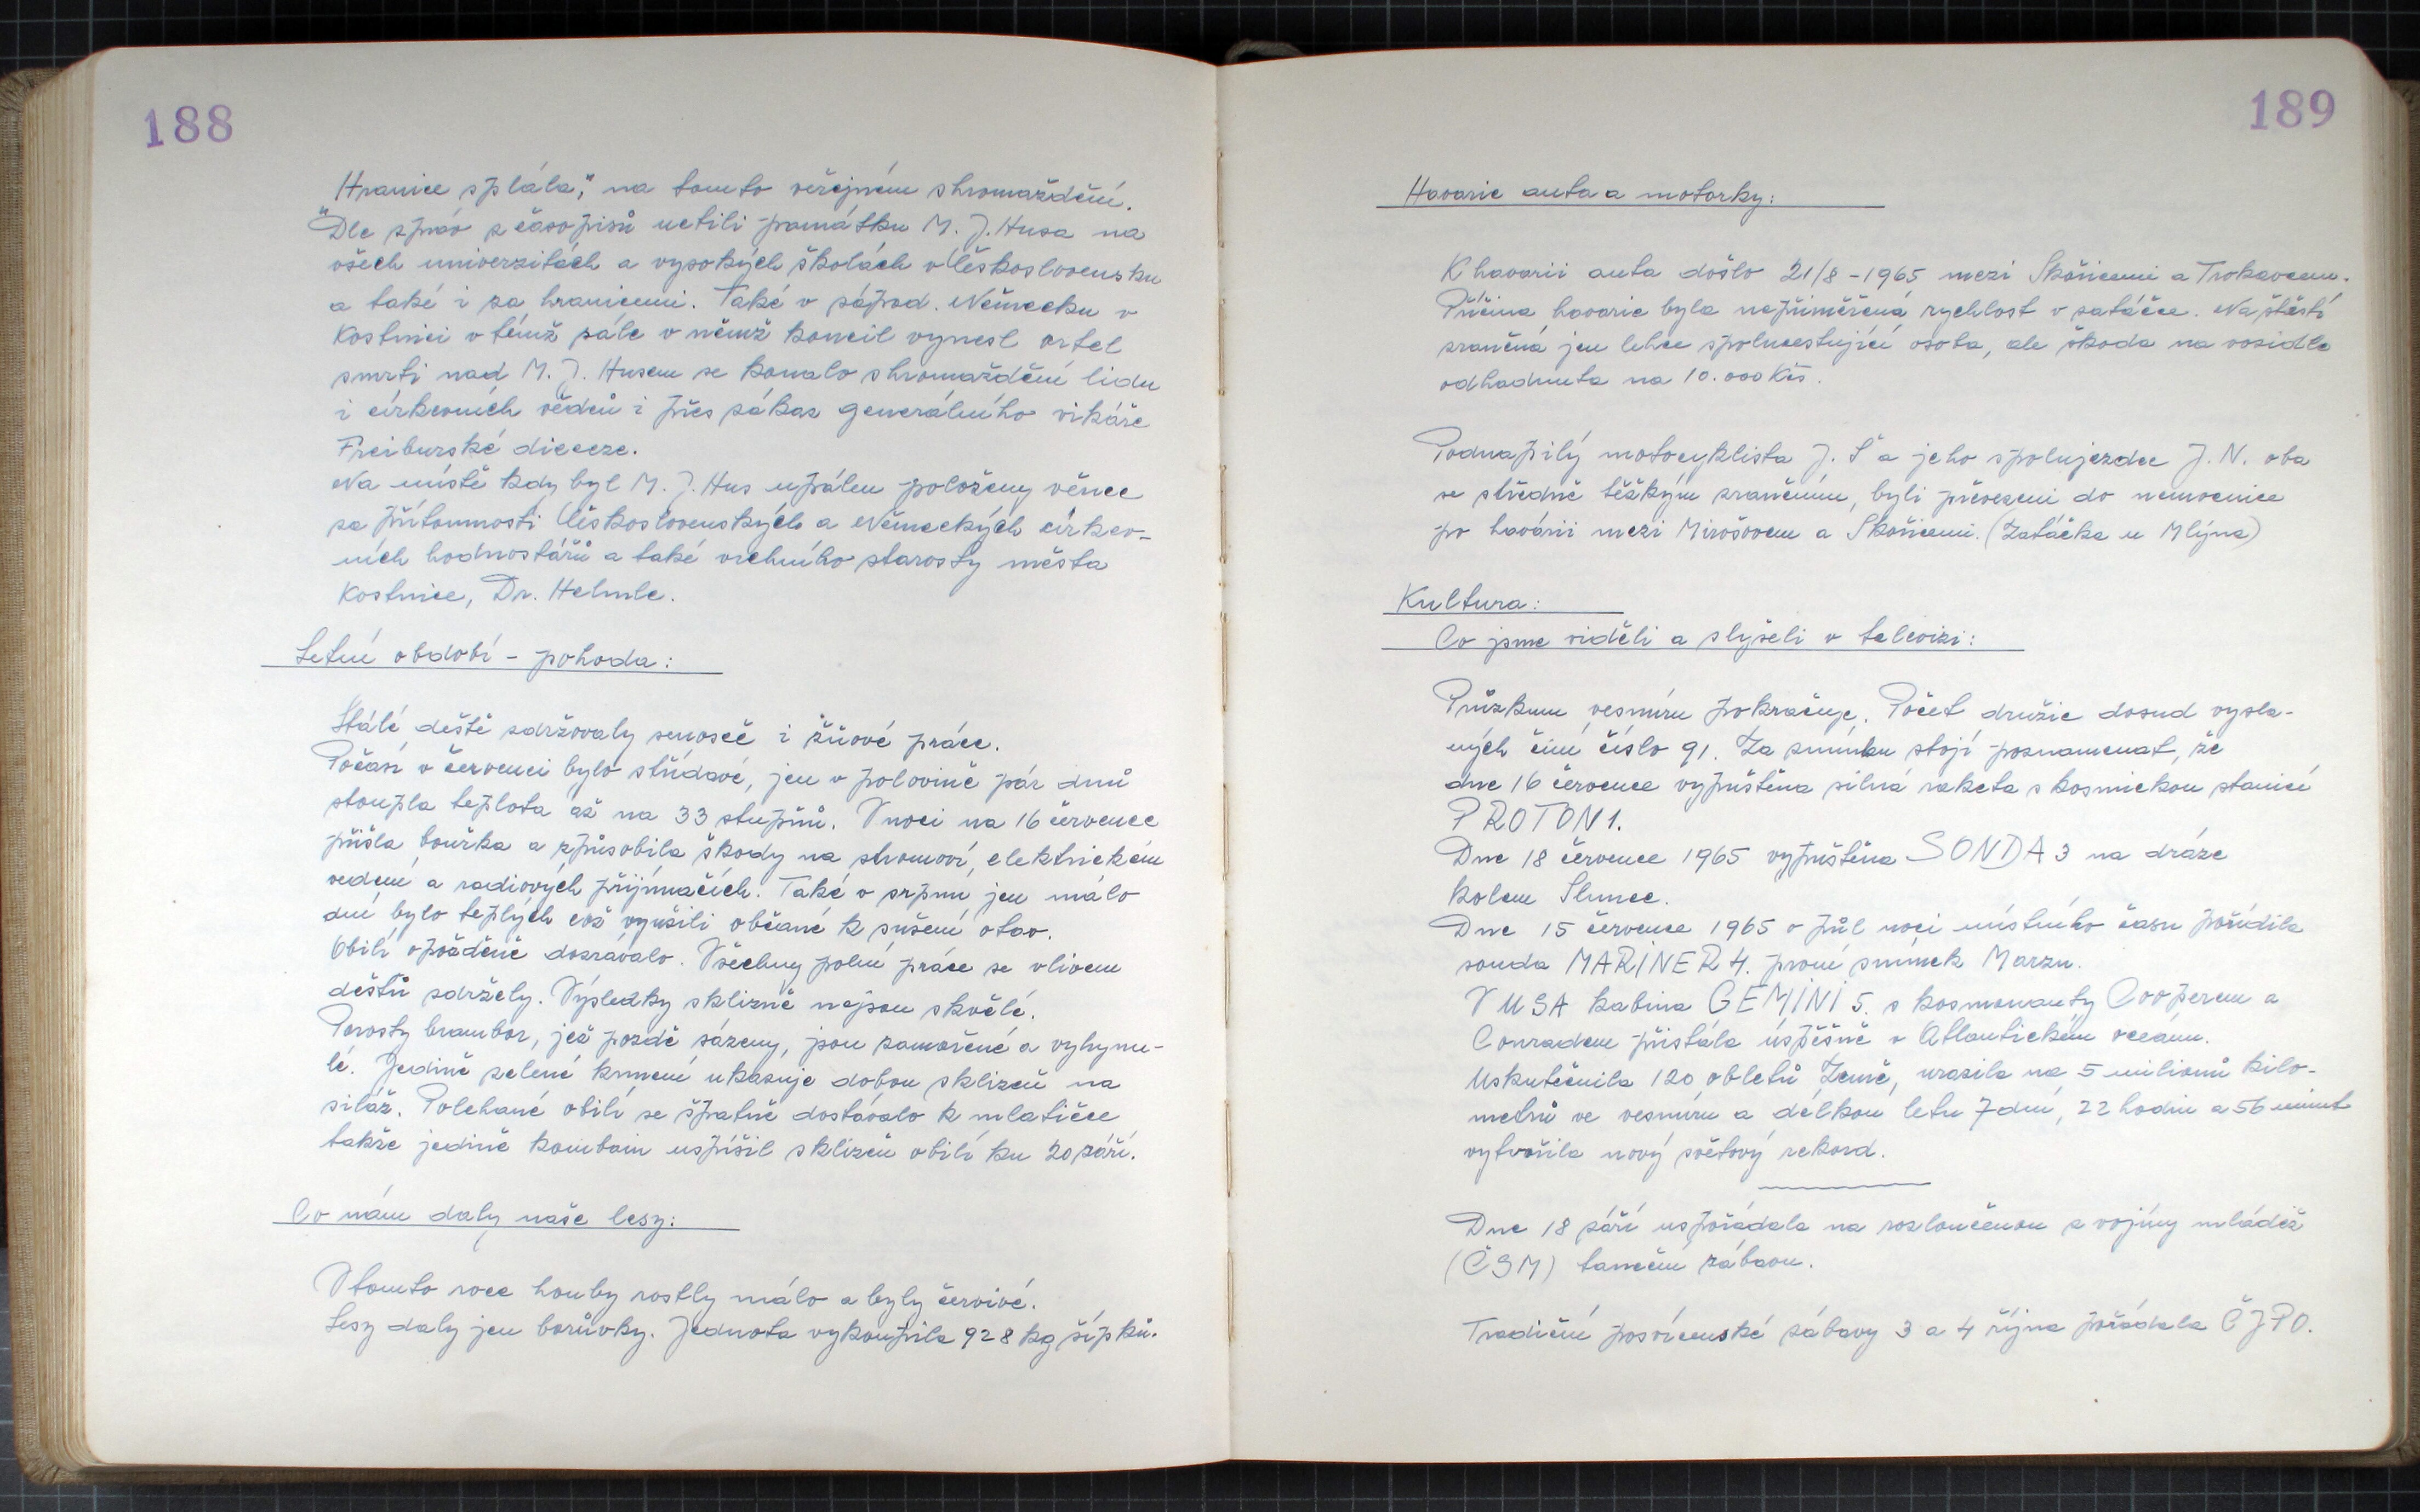 188
Hranice splála," na tomto veřejném shromaždění.
"Dle zpráv z časopisů uctili památku M. J. Husa na
všech univerzitách a vysokých školách v Československu
a také i za hranicemi. Také v západ. Německu v
Kostnici v témž sále v němž koncil vynesl ortel
smrti nad M. J. Husem se konalo shromaždění lidu
i církevních vědců i přes zákaz generálního vikáře
Freiburské dieceze.
Na místě kdy byl M. J. Hus upálen položeny věnce
za přítomnosti Československých a Německých církev-
ních hodnostářů a také vrchního starosty města
Kostnice, Dr. Helmle.
Letní období - pohoda:
Stálé deště zdržovaly senoseč i žňové práce.
Počasí v červenci bylo střídavé, jen v polovině pár dnů
stoupla teplota až na 33 stupňů. V noci na 16 července
přišla bouřka a způsobila škody na stromoví, elektrickém
vedení a radiových přijímačích. Také v srpnu jen málo
dní bylo teplých což využili občané k sušení otav.
Obilí opožděně dozrávalo. Všechny polní práce se vlivem
dešťů zdržely. Výsledky sklizně nejsou skvělé.
Porosty brambor, jež pozdě sázeny, jsou zamořené a vyhynu-
lé. Jedině zelené krmení ukazuje dobou sklizeň na
siláž. Polehané obilí se špatně dostávalo k mlatičce
takže jedině kombain uspíšil sklizeň obilí ku 20 září.
Co nám daly naše lesy:
V tomto roce houby rostly málo a byly červivé.
Lesy daly jen borůvky. Jednota vykoupila 928 kg šípků.
189
Havarie auta a motorky:
K havarii auta došlo 21/8-1965 mezi Skořicemi a Trokavcem.
Příčina havarie byla nepřiměřená rychlost v zatáčce. Na štěstí
zraněná jen lehce spolucestující osoba, ale škoda na vozidle
odhadnuta na 10.000 Kčs.
Podnapilý motocyklista J. Š a jeho spolujezdec J. N. oba
se středně těžkým zraněním, byli převezeni do nemocnice
po havárii mezi Mirošovem a Skořicemi. (Zatáčka u Mlýna)
Kultura:
Co jsme viděli a slyšeli v televizi:
Průzkum vesmíru pokračuje. Počet družic dosud vysla-
ných činí číslo 91. Za zmínku stojí poznamenat, že
dne 16 července vypuštěna silná raketa s kosmickou stanicí
PROTON 1.
Dne 18 července 1965 vypuštěna SONDA 3 na dráze
kolem Slunce.
Dne 15 července 1965 o půl noci místního času pořídila
sonda MARINER 4. první snímek Marzu.
V USA kabina GEMINI 5. s kosmonauty Cooperem a
Conradem přistála úspěšně v Atlantickém oceánu.
Uskutečnila 120 obletů Země, urazila na 5 milionů kilo-
metrů ve vesmíru a délkou letu 7 dní, 22 hodin a 56 minut
vytvořila nový světový rekord.
Dne 18 září uspořádala na rozloučenou s vojíny mládež
(ČSM) taneční zábavu.
Tradiční posvícenské zábavy 3 a 4 října pořádala ČJPO.